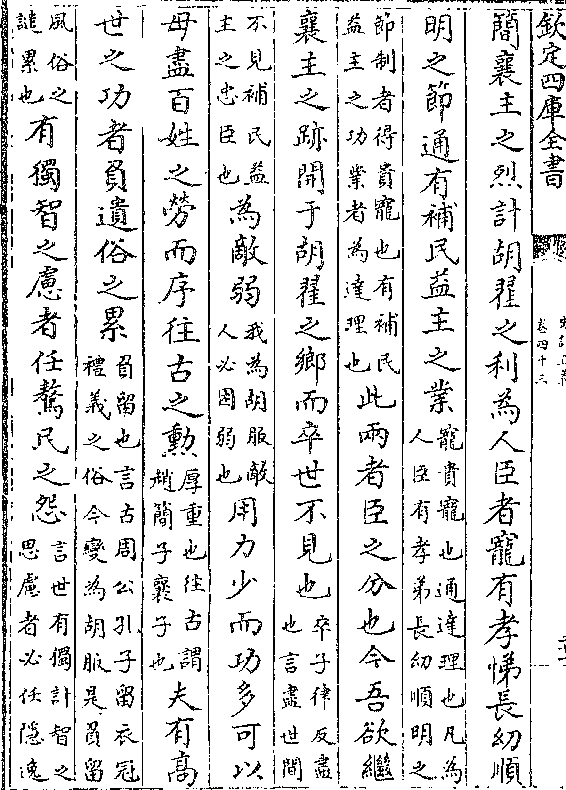 欽定四庫全書
卷四十三
簡襄主之烈計胡翟之利為人臣者寵有孝悌長幼順
明之節通有補民益主之業寵貴寵也通達理也凡為人臣有孝弟長幼順明之
節制者得貴寵也有補民益主之功業者為達理也此兩者臣之分也今吾欲繼
襄主之跡開于胡翟之鄉而卒世不見也卒子律反盡也言盡世間
不見補民益主之忠臣也為敵弱我為胡服敵人必困弱也用力少而功多可以
毋盡百姓之勞而序往古之勲厚重也往古謂趙簡子襄子也夫有高
世之功者負遺俗之累負留也言古周公孔子留衣冠禮義之俗今變為胡服是負留
風俗之譴累也有獨智之慮者任驁民之怨言世有獨計智之思慮者必任隱逸